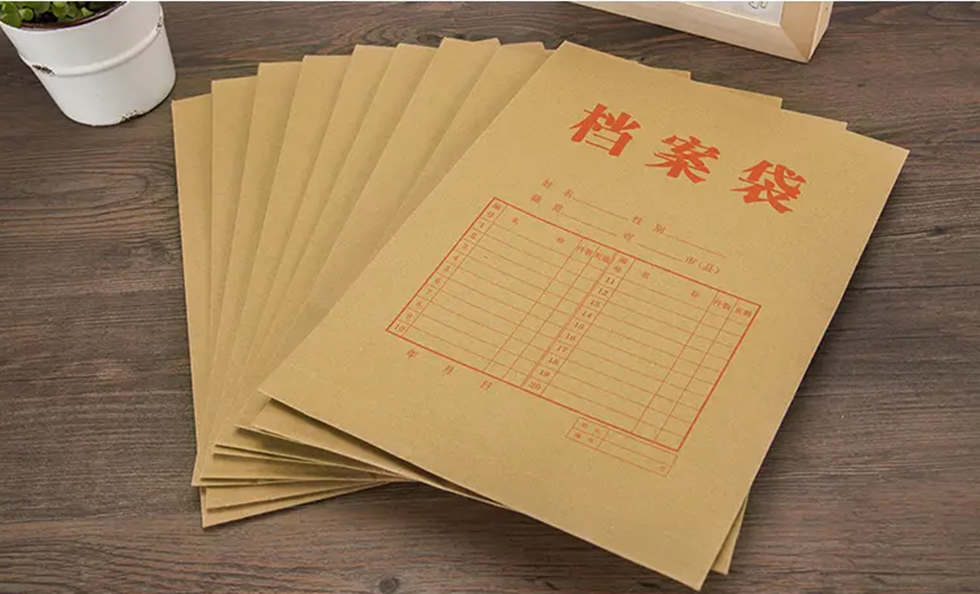 档案袋
姓名 性别
籍贯 省 市(县)
编号 名称 件数 页数 编号 名称 件数 页数
1 11
2 12
3 13
4 14
5 15
6 16
7 17
8 18
9 19
10 20
年 月 日